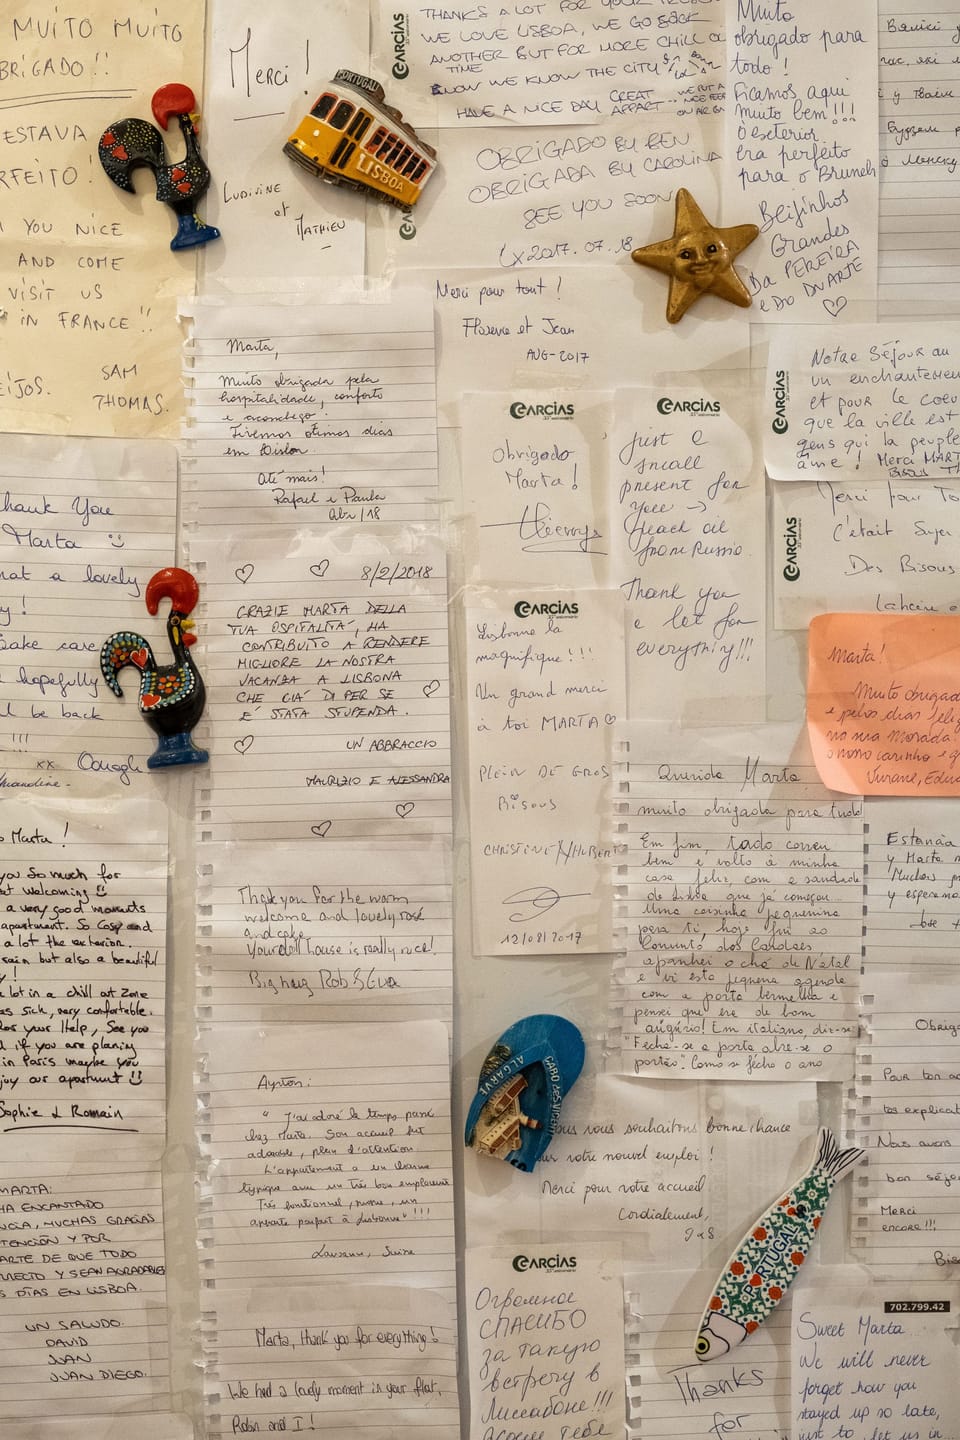 MUITO MUITO
BRIGADO !!
ESTAVA
RFEITO !
YOU NICE
AND COME
VISIT US
IN FRANCE !!
EIJOS.
SAM
THOMAS.
Merci !
LUDIVINE
et
MATHIEU
PORTUGAL
LISBOA
GARCIAS
THANKS A LOT FOR YOUR
WE LOVE LISBOA, WE GO BACK
ANOTHER TIME BUT FOR MORE CHILL
KNOW WE KNOW THE CITY
HAVE A NICE DAY GREAT APPART
OBRIGADO BY BEN
OBRIGADA BY CAROLINA
SEE YOU SOON
Lx 2017. 07. 18
Muito
obrigado para
todo !
Ficamos aqui
muito bem !!!
O exterior
era perfeito
para o Brunch
Beijinhos
Grandes
Da PEREIRA
e Do DUARTE
Merci pour tout !
Florence et Jean
AUG-2017
Marta,
Muito obrigada pela
hospitalidade, conforto
e aconchego.
Tivemos ótimos dias
em Lisboa.
Até mais!
Rafael e Paula
Abr/18
GARCIAS
Obrigado
Marta !
GARCIAS
just a
small
present for
you →
from Russia.
Thank you
a lot for
everything!!!
GARCIAS
Notre Séjour au
un enchantement
et pour le coeur
que la ville est
gens qui la peuple
âme ! Merci MARTA
Bisous
GARCIAS
Merci pour To
C'était Super
Des Bisous
Thank You
Marta
hat a lovely
y !
Take care
hopefully
l be back
!!!
xx Oonagh
8/2/2018
GRAZIE MARTA DELLA
TUA OSPITALITÀ, HA
CONTRIBUITO A RENDERE
MIGLIORE LA NOSTRA
VACANZA A LISBONA
CHE GIÀ DI PER SÈ
È STATA STUPENDA.
UN ABBRACCIO
MAURIZIO E ALESSANDRA
GARCIAS
Lisbonne la
magnifique ! ! !
Un grand merci
à toi MARTA
PLEIN DE GROS
Bisous
CHRISTINE / HUBERT
12/08/2017
Marta!
Muito obrigad
e pelos dias feliz
na sua morada
o nosso carinho e g
Querida Marta
muito obrigada para tudo
Em fim, tudo correu
bem e volto à minha
casa feliz, com a saudade
de Lisboa que já começou...
Uma coisinha pequenina
para ti, hoje fui ao
Convento dos Cardaes
apanhei o chá de Natal
e vi esta pequena agenda
com a porta vermelha e
pensei que era de bom
augúrio! Em italiano, diz-se
"Fecha-se a porta abre-se o
portão". Como se fecho o ano
Estancia
y Marta
Muchas
y esperamos
Marta !
you so much for
at welcoming
a very good moments
apartment. So Cosy and
a lot the exterior.
rain but also a beautiful
y !
a lot in a chill out Zone
as sick, very confortable.
for your Help, See you
d if you are planing
in Paris maybe you
joy our apartment !!
Sophie & Romain
Thank you for the warm
welcome and lovely rosé
and cake.
Your doll house is really nice!
Big hug Rob & Eva
Ayrton :
" J'ai adoré le temps passé
chez Marta. Son accueil fut
adorable, plein d'attention
L'appartement a un charme
typique avec un très bon emplacement
appart parfait à Lisbonne" !!!
Lausanne, Suisse
ALGARVE
CABO DE S. VICENTE
nous vous souhaitons bonne chance
votre nouvel emploi !
Merci pour votre accueil
Cordialement,
J & S
Obrigad
Pour ton ac
tes explicat
Nous avons
bon séjo
Merci
encore !!!
Bis
MARTA:
HA ENCANTADO
MUCHAS GRACIAS
TENCIÓN Y POR
ARTE DE QUE TODO
RRECTO Y SEAN AGRADABLES
S DÍAS EN LISBOA.
UN SALUDO.
DAVID
JUAN
JUAN DIEGO.
Marta, thank you for everything !
We had a lovely moment in your flat,
Robin and I !
GARCIAS
Огромное
СПАСИБО
за такую
встречу в
Лиссабоне!!!
PORTUGAL
Thanks
for
702.799.42
Sweet Marta
We will never
forget how you
stayed up so late,
just to let us in...